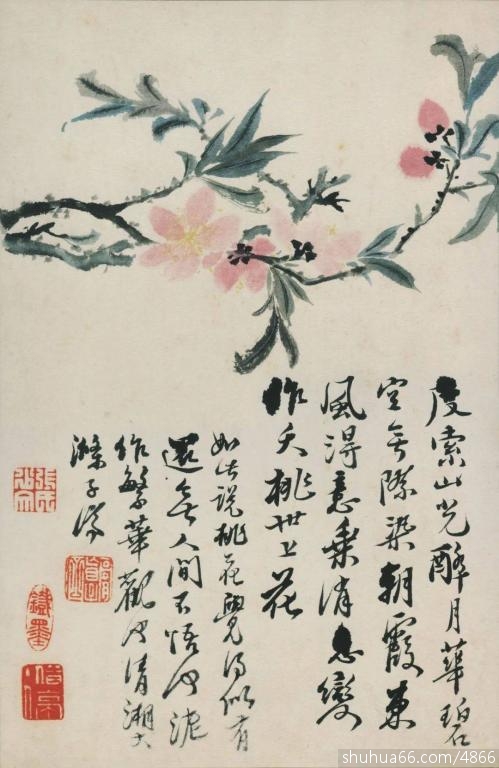 度索山光醉月華碧
空無際染朝霞東
風得意乘消息變
作夭桃世上花
如此說桃花覺得似有
還無人間不悟何泥
作繁華觀也清湘大
滌子濟
鐵墨
借亭
shuhua66.com/4866